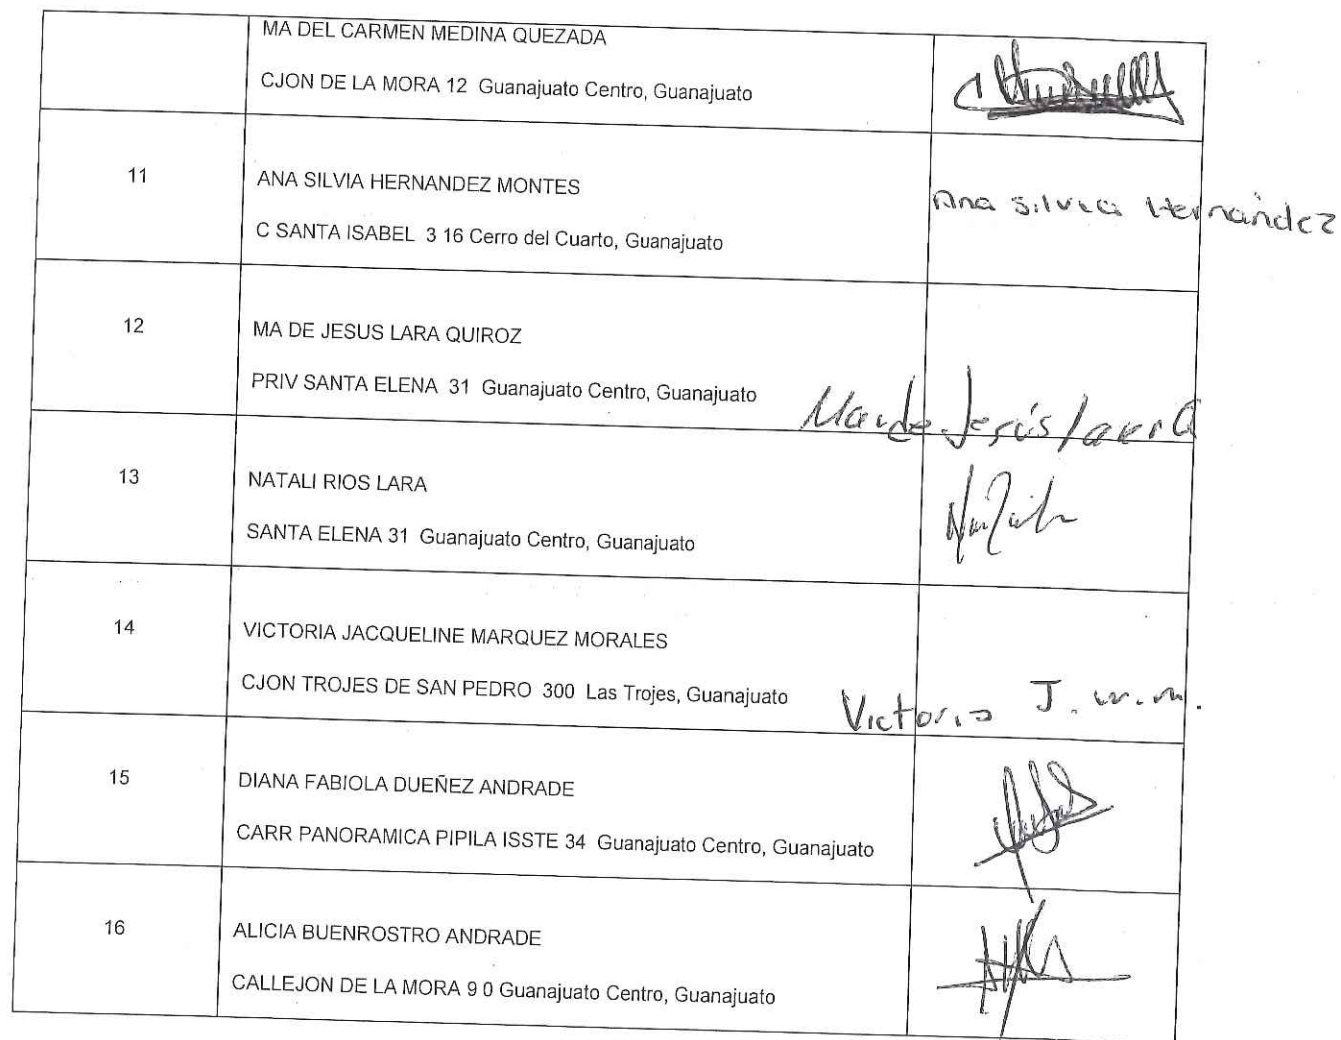 MA DEL CARMEN MEDINA QUEZADA
CJON DE LA MORA 12 Guanajuato Centro, Guanajuato
11
ANA SILVIA HERNANDEZ MONTES
Ana Silvia Hernández
C SANTA ISABEL 3 16 Cerro del Cuarto, Guanajuato
12
MA DE JESUS LARA QUIROZ
PRIV SANTA ELENA 31 Guanajuato Centro, Guanajuato
Ma de Jesús Lara Q
13
NATALI RIOS LARA
SANTA ELENA 31 Guanajuato Centro, Guanajuato
14
VICTORIA JACQUELINE MARQUEZ MORALES
CJON TROJES DE SAN PEDRO 300 Las Trojes, Guanajuato
Victoria J. m.m.
15
DIANA FABIOLA DUEÑEZ ANDRADE
CARR PANORAMICA PIPILA ISSTE 34 Guanajuato Centro, Guanajuato
16
ALICIA BUENROSTRO ANDRADE
CALLEJON DE LA MORA 9 0 Guanajuato Centro, Guanajuato